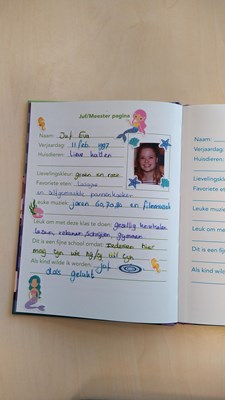 Juf/Meester pagina
Naam: Juf Eva
Verjaardag: 11 feb. 1997
Huisdieren: Lieve katten
Lievelingskleur: groen en roze
Favoriete eten: Lasagne
en allgemaakte pannenkoeken
Leuke muziek: jaren 60,70,80 en filmmuziek
Leuk om met deze klas te doen: gezellig
lezen, rekenen, schrijven, gymmen
Dit is een fijne school omdat: Iedereen hier
mag zijn wie hij/zij wil zijn
Als kind wilde ik worden: juf
dat is gelukt
Naam:
Verjaardag:
Huisdieren:
Lievelingskl
Favoriete eten
Leuke muziek
Leuk om met
Dit is een fijne
Als kind wilde